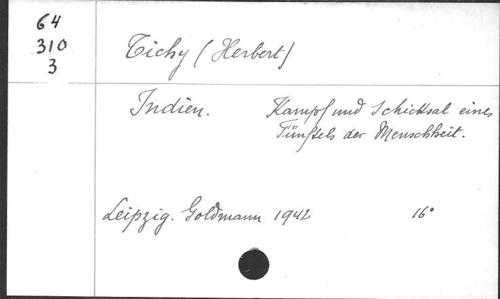 64
310
3
Tichy (Herbert)
Indien. Kampf und Schicksal eines
Fünftels der Menschheit.
Leipzig. Goldmann 1942 16°